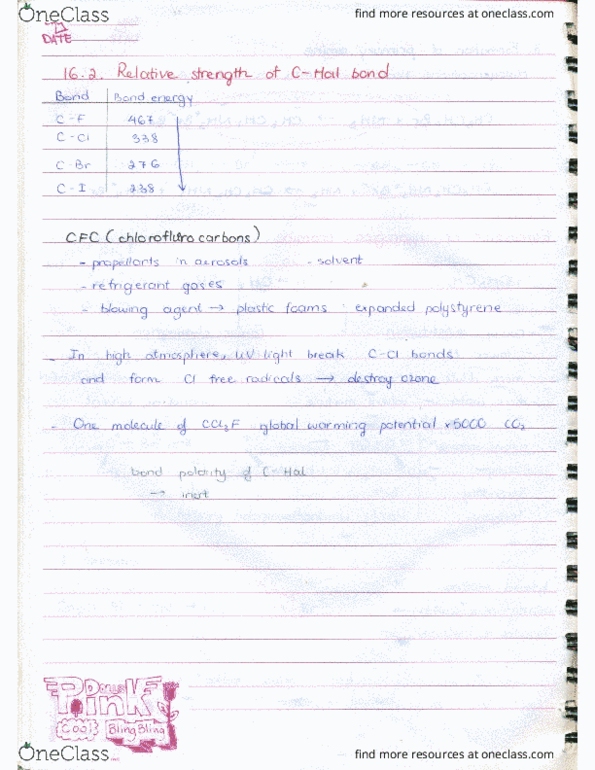 OneClass
find more resources at oneclass.com
DATE
16.2. Relative strength of C-Hal bond
Bond Bond energy
C-F 467
C-Cl 338
C-Br 276
C-I 238
CFC (chlorofluro carbons)
- propellants in aerosols - solvent
- refrigerant gases
- blowing agent → plastic foams expanded polystyrene
- In high atmosphere, UV light break C-Cl bonds
and form Cl free radicals → destroy ozone
- One molecule of CCl₃F global warming potential x5000 CO₂
bond polarity of C-Hal
→ inert
Pink
Cool BlingBling
OneClass
find more resources at oneclass.com